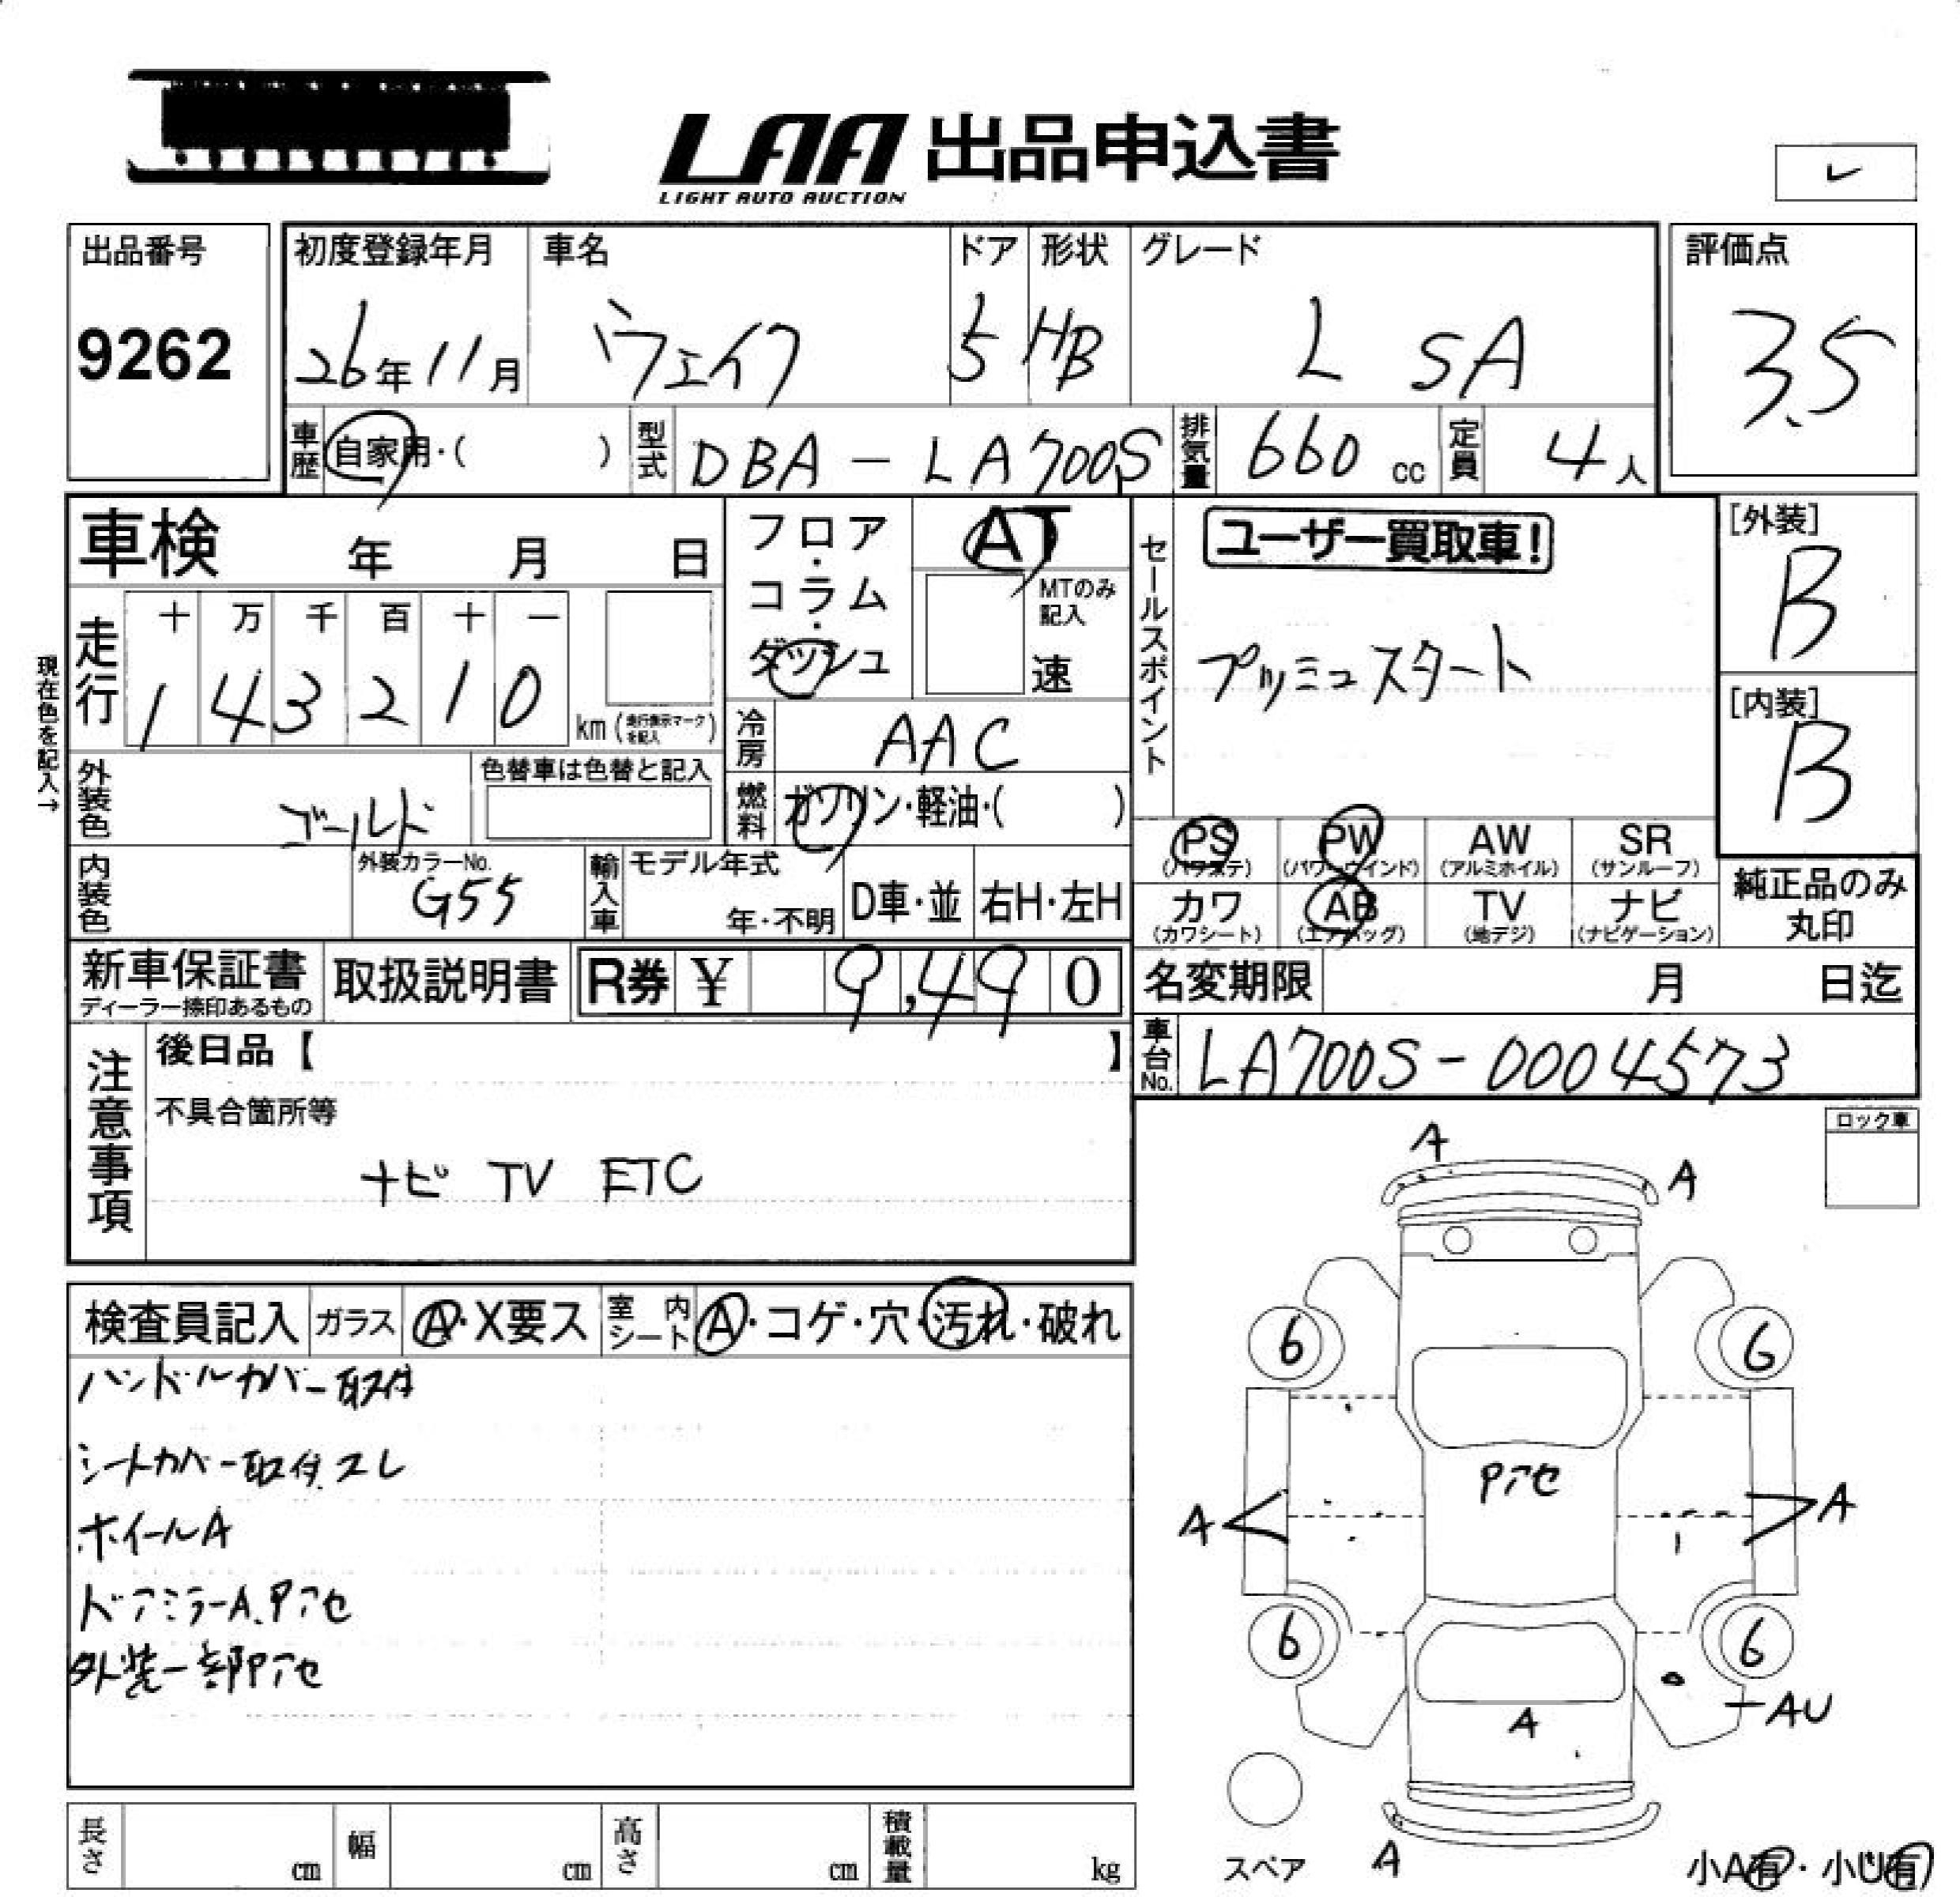 LAA 出品申込書
LIGHT AUTO AUCTION
レ
出品番号
9262
初度登録年月
26年11月
車名
ウェイク
ドア
5
形状
HB
グレード
L SA
評価点
3.5
車歴
自家用・( )
型式
DBA-LA700S
排気量
660 cc
定員
4人
車検 年 月 日
フロア・コラム・ダッシュ
AT
MTのみ記入
速
セールスポイント
ユーザー買取車!
プッシュスタート
[外装]
B
[内装]
B
現在色を記入→
走行
十 万 千 百 十 一
1 4 3 2 1 0
km (走行表示マークを記入)
冷房
AAC
外装色
ゴールド
色替車は色替と記入
燃料
ガソリン・軽油・( )
PS (パワステ)
PW (パワーウインド)
AW (アルミホイル)
SR (サンルーフ)
カワ (カワシート)
AB (エアバッグ)
TV (地デジ)
ナビ (ナビゲーション)
純正品のみ
丸印
内装色
外装カラーNo.
G55
輸入車
モデル年式
年・不明
D車・並
右H・左H
新車保証書
ディーラー捺印あるもの
取扱説明書
R券 ¥ 9,490
名変期限 月 日迄
注意事項
後日品【 】
不具合箇所等
ナビ TV ETC
車台No.
LA700S-0004573
ロック車
検査員記入
ガラス
A・X要ス
室内シート
A・コゲ・穴・汚れ・破れ
ハンドルカバー取付
シートカバー取付スレ
ホイールA
ドアミラーA.Pアセ
外装一部Pアセ
A
A
6
6
Pアセ
A
A
6
6
AU
A
A
スペア
小A有・小U有
長さ cm
幅 cm
高さ cm
積載量 kg